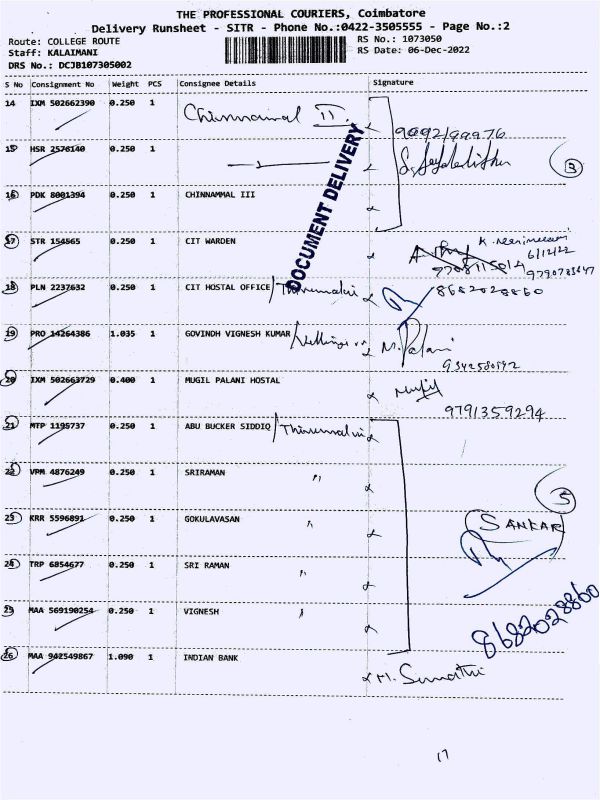 THE PROFESSIONAL COURIERS, Coimbatore
Delivery Runsheet - SITR - Phone No.:0422-3505555 - Page No.:2
Route: COLLEGE ROUTE
RS No.: 1073050
Staff: KALAIMANI
RS Date: 06-Dec-2022
DRS No.: DCJB107305002
S No Consignment No Weight PCS Consignee Details Signature
14 IXM 502662390 0.250 1 Chinnammal II
9092199976
15 HSR 2576140 0.250 1
3
16 PDK 8001394 0.250 1 CHINNAMMAL III
DOCUMENT DELIVERY
17 STR 154565 0.250 1 CIT WARDEN
6/12/22
18 PLN 2237632 0.250 1 CIT HOSTAL OFFICE
8682028860
19 PRO 14264386 1.035 1 GOVINDH VIGNESH KUMAR M. Palani
20 IXM 502663729 0.400 1 MUGIL PALANI HOSTAL
9791359294
21 MTP 1195737 0.250 1 ABU BUCKER SIDDIQ
22 VPM 4876249 0.250 1 SRIRAMAN "
5
23 KRR 5596891 0.250 1 GOKULAVASAN "
SANKAR
24 TRP 6854677 0.250 1 SRI RAMAN "
25 MAA 569190254 0.250 1 VIGNESH "
8682028860
26 MAA 942549867 1.090 1 INDIAN BANK
M. Sumathi
17